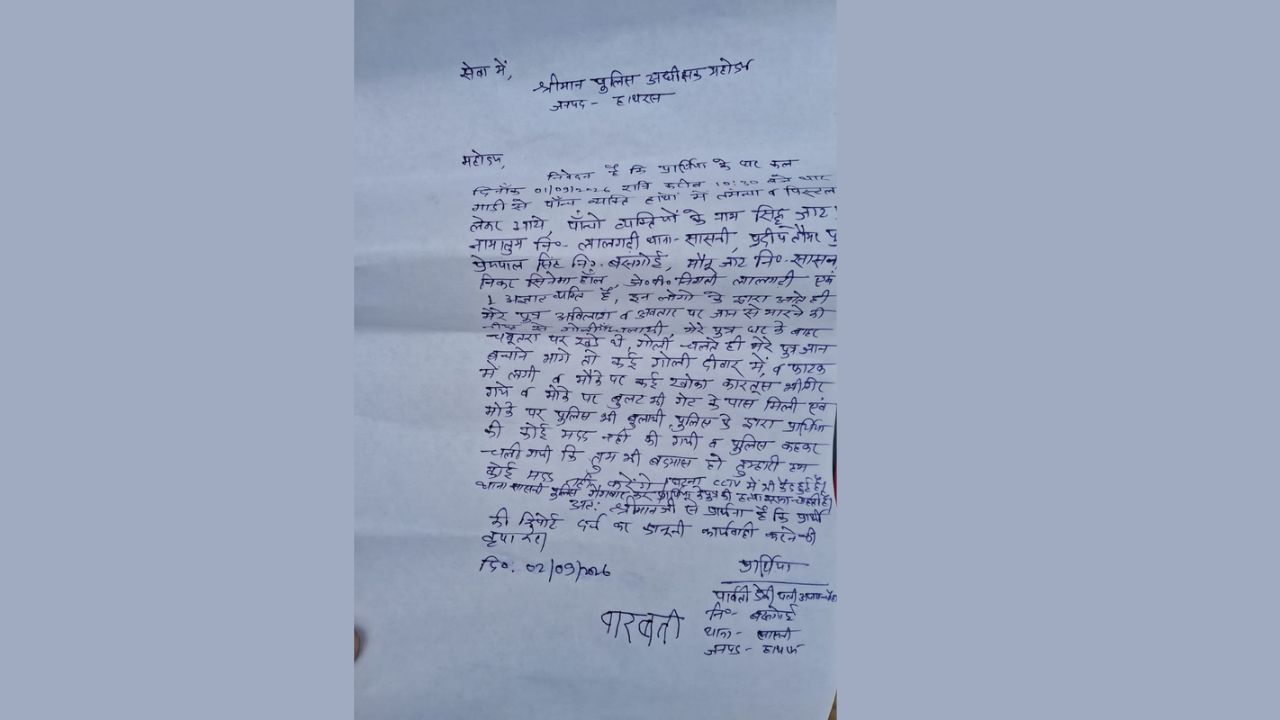 सेवा में,
श्रीमान पुलिस अधीक्षक महोदय
जनपद - हाथरस
महोदय,
निवेदन है कि प्रार्थिया के घर कल
दिनाँक 01/09/2026 रात्रि करीब 10:30 बजे चार
गाडी से पाँच व्यक्ति हाथों में तमंचा व पिस्टल
लेकर आये, पाँचो व्यक्तियों के नाम सिट्टू जाट
नामालूम नि०- लालगढी थाना- सासनी, प्रदीप तौमर पु
प्रेमपाल सिंह नि०- बसगोई, मोनू जाट नि०- सासन
निकट सिनेमा हॉल, जे०पी० निवासी लालगढी एवं
1 अज्ञात व्यक्ति है, इन लोगो के द्वारा आते ही
मेरे पुत्र अविलाश व अवतार पर जान से मारने की
से गोली चलायी, मेरे पुत्र घर के बाहर
चबूतरा पर खडे थे, गोली चलते ही मेरे पुत्र जान
बचाने भागे तो कई गोली दीवार में, व फाटक
में लगी व मौके पर कई खोका कारतूस भी गिर
गये व मौके पर बुलट भी गेट के पास मिली एवं
मौके पर पुलिस भी बुलायी, पुलिस के द्वारा प्रार्थिया
की कोई मदद नही की गयी व पुलिस कहकर
चली गयी कि तुम भी बदमास हो तुम्हारी हम
कोई मदद नहीं करेंगे। घटना CCTV में भी कैद हुई है।
थाना सासनी पुलिस गैंगवार कर प्रार्थिया के पुत्र की हत्या कराना चाहती है।
अतः श्रीमान जी से प्रार्थना है कि प्रार्थी
की रिपोर्ट दर्ज कर कानूनी कार्यवाही करने की
कृपा करें।
दि०. 02/09/2026
प्रार्थिया
पार्वती देवी पत्नी
नि०- बसगोई
थाना- सासनी
जनपद - हाथरस
पारबती